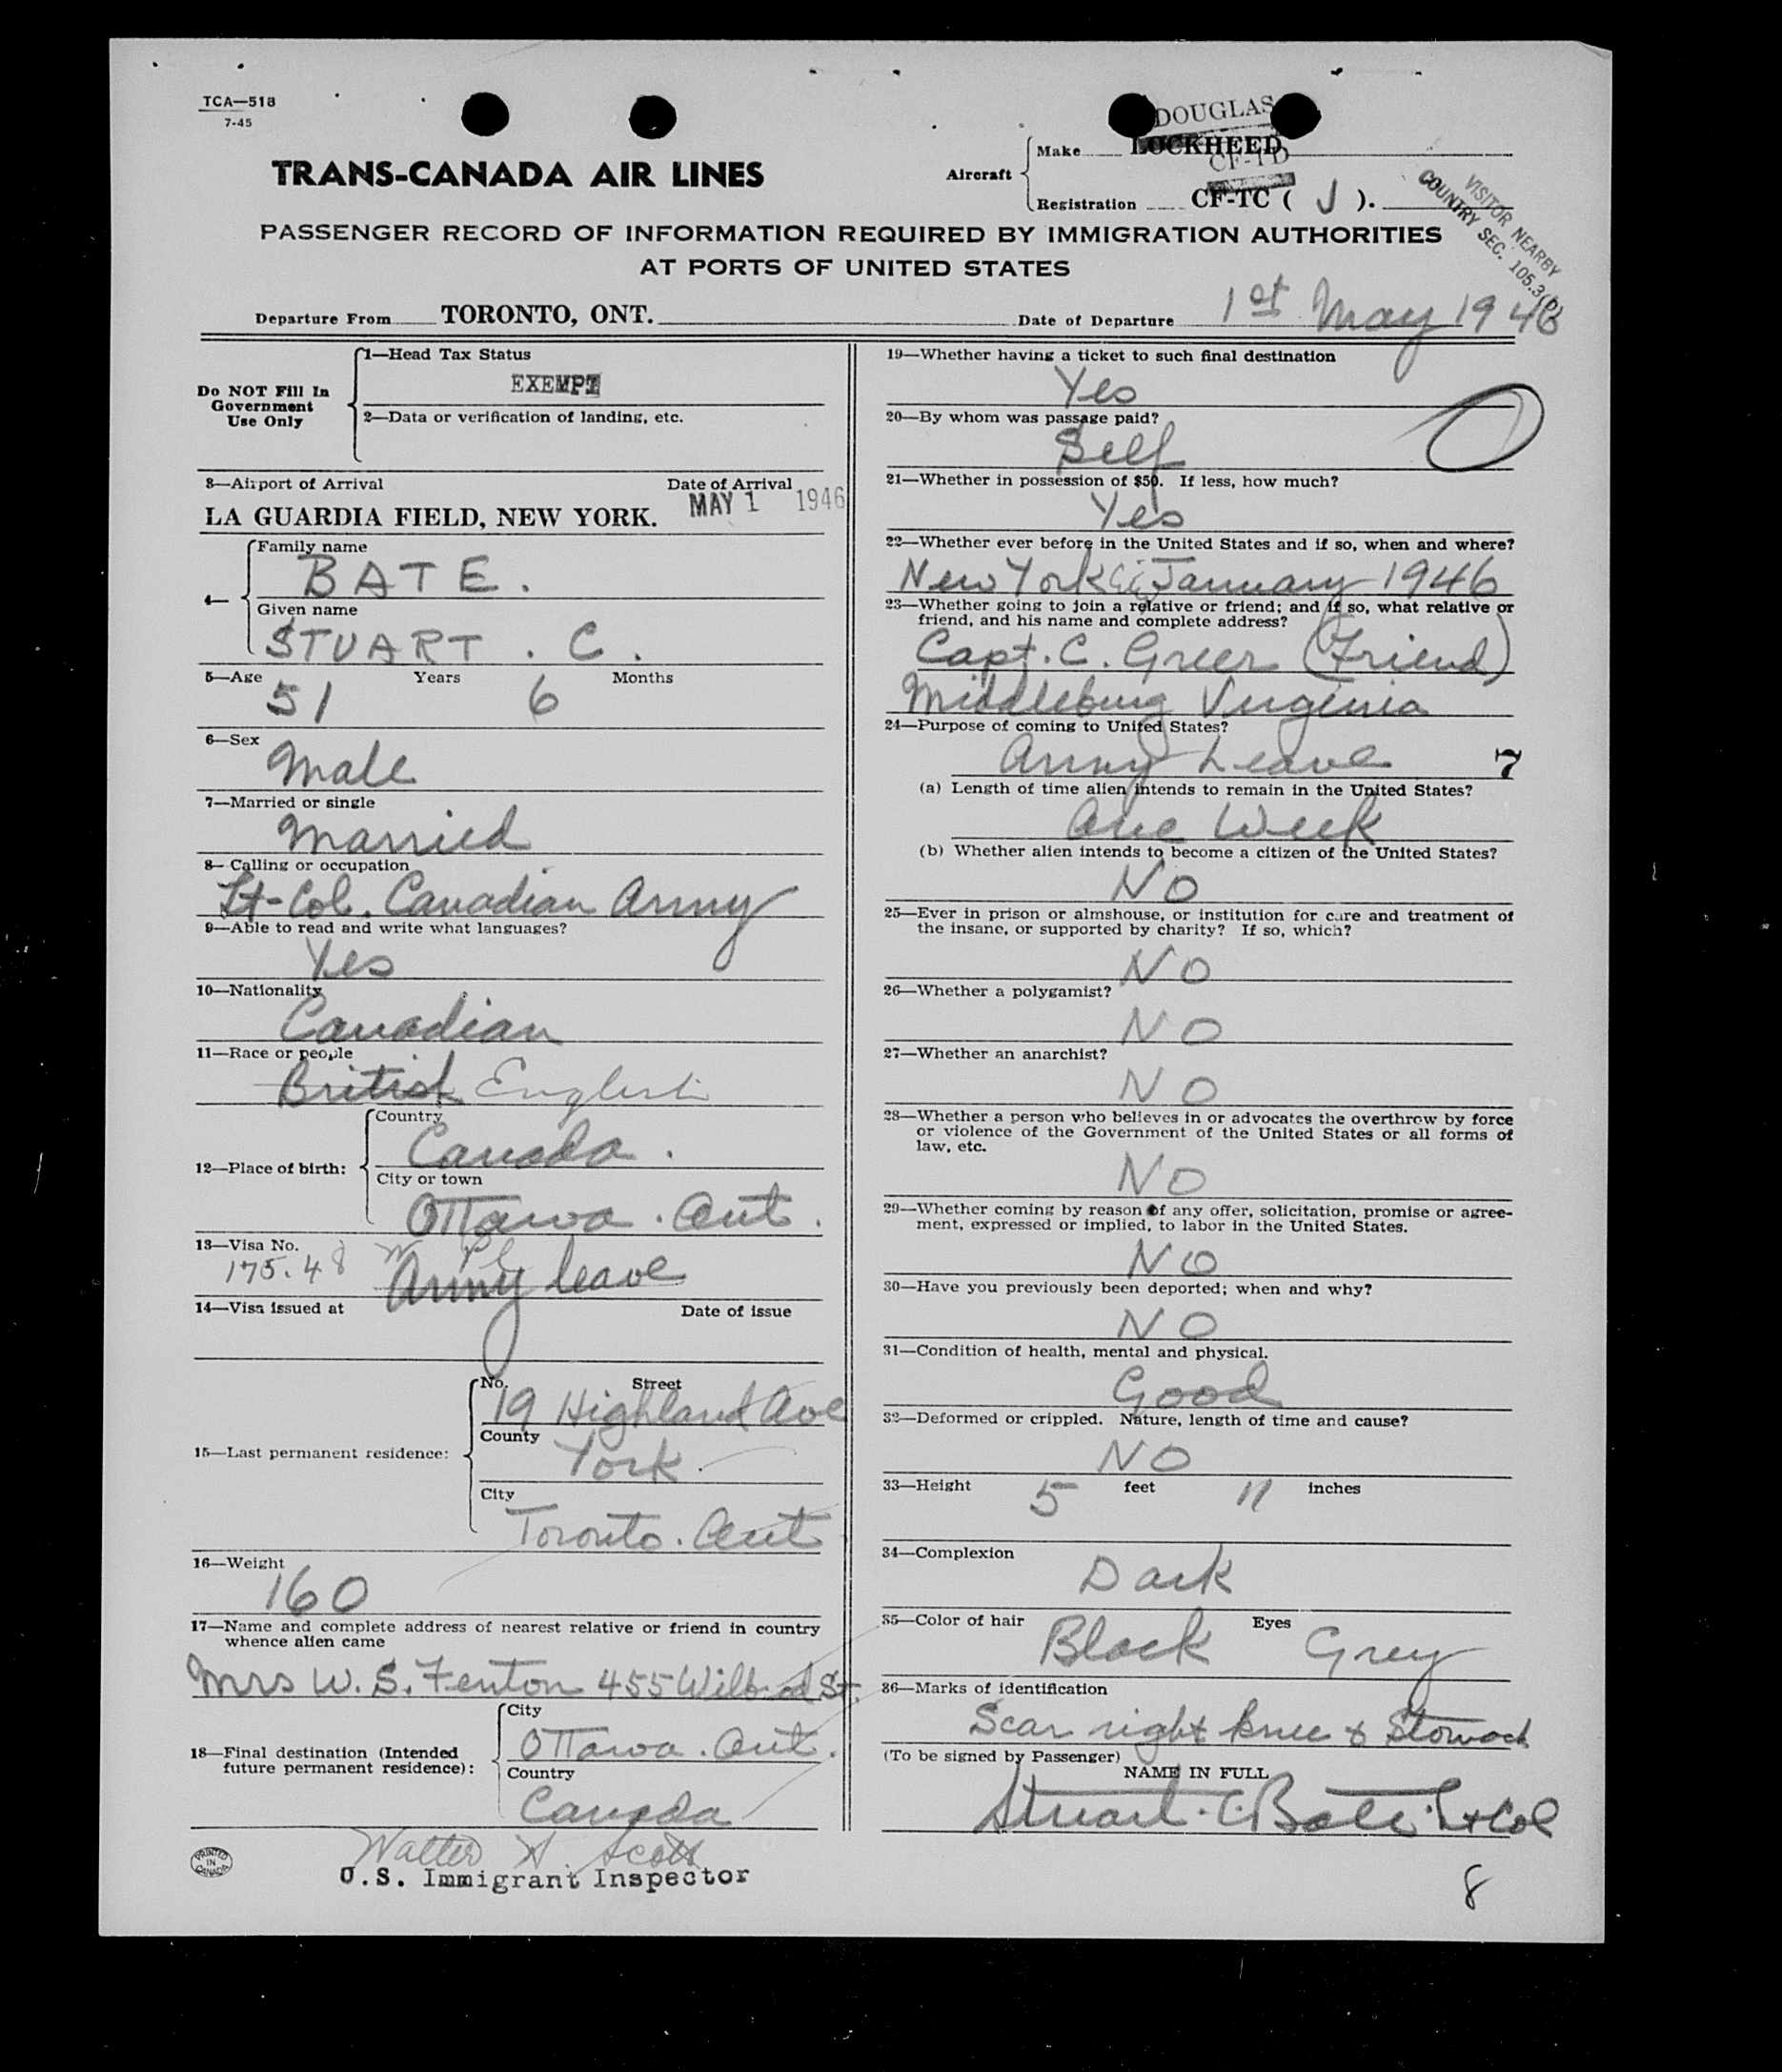 TCA—518
7-45
DOUGLAS
Make LOCKHEED
CF-TD
TRANS-CANADA AIR LINES
Aircraft
Registration CF-TC ( J ).
VISITOR NEARBY
COUNTRY SEC. 105.3(b)
PASSENGER RECORD OF INFORMATION REQUIRED BY IMMIGRATION AUTHORITIES
AT PORTS OF UNITED STATES
Departure From TORONTO, ONT. Date of Departure 1st May 1946
Do NOT Fill In
Government
Use Only
1—Head Tax Status
EXEMPT
2—Data or verification of landing, etc.
3—Airport of Arrival Date of Arrival
LA GUARDIA FIELD, NEW YORK. MAY 1 1946
4—
Family name
BATE.
Given name
STUART. C.
5—Age 51 Years 6 Months
6—Sex
Male
7—Married or single
Married
8—Calling or occupation
Lt-Col. Canadian Army
9—Able to read and write what languages?
Yes
10—Nationality
Canadian
11—Race or people
British English
12—Place of birth:
Country
Canada.
City or town
Ottawa. Ont.
13—Visa No.
175.48 Army leave
14—Visa issued at Date of issue
15—Last permanent residence:
No. Street
19 Highland Ave
County
York.
City
Toronto. Ont
16—Weight
160
17—Name and complete address of nearest relative or friend in country
whence alien came
Mrs W. S. Fenton 455 Wilbrod St.
18—Final destination (Intended
future permanent residence):
City
Ottawa. Ont.
Country
Canada
Walter A. Scott
U.S. Immigrant Inspector
PRINTED
IN
CANADA
19—Whether having a ticket to such final destination
Yes
20—By whom was passage paid?
Self
21—Whether in possession of $50. If less, how much?
Yes
22—Whether ever before in the United States and if so, when and where?
New York January 1946
23—Whether going to join a relative or friend; and if so, what relative or
friend, and his name and complete address?
Capt. C. Greer (Friend)
Middleburg Virginia
24—Purpose of coming to United States?
Army Leave 7
(a) Length of time alien intends to remain in the United States?
One Week
(b) Whether alien intends to become a citizen of the United States?
NO
25—Ever in prison or almshouse, or institution for care and treatment of
the insane, or supported by charity? If so, which?
NO
26—Whether a polygamist?
NO
27—Whether an anarchist?
NO
28—Whether a person who believes in or advocates the overthrow by force
or violence of the Government of the United States or all forms of
law, etc.
NO
29—Whether coming by reason of any offer, solicitation, promise or agree-
ment, expressed or implied, to labor in the United States.
NO
30—Have you previously been deported; when and why?
NO
31—Condition of health, mental and physical.
Good
32—Deformed or crippled. Nature, length of time and cause?
NO
33—Height 5 feet 11 inches
34—Complexion
Dark
35—Color of hair Black Eyes Grey
36—Marks of identification
Scar right knee & Stomach
(To be signed by Passenger)
NAME IN FULL
Stuart. C. Bate. Lt Col
8